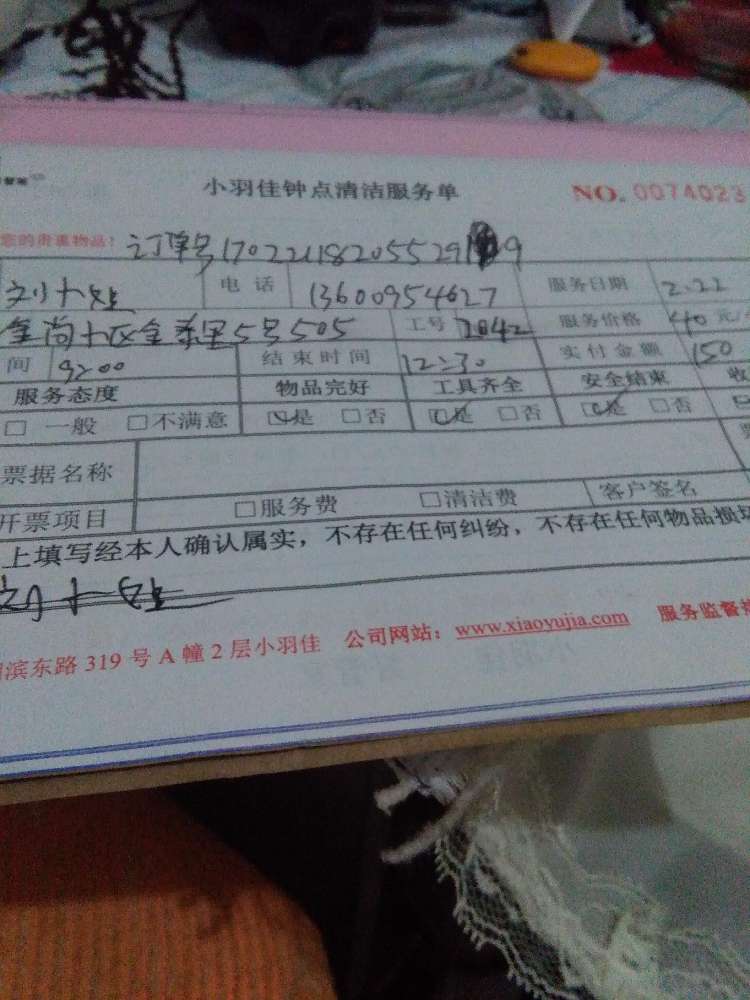 小羽佳钟点清洁服务单 NO. 0074023
您的贵重物品! 订单号170221182055291 9
刘小姐 电话 13600954627 服务日期 2.22
金尚小区金泰里5号505 工号 2042 服务价格 40元/
间 9:00 结束时间 12:30 实付金额 150
服务态度 物品完好 工具齐全 安全结束 收
□ 一般 □不满意 ☑是 □否 ☑是 □否 ☑是 □否
票据名称
开票项目 □服务费 □清洁费 客户签名
上填写经本人确认属实,不存在任何纠纷,不存在任何物品损坏
刘小姐
湖滨东路 319 号 A 幢 2 层小羽佳 公司网站:www.xiaoyujia.com 服务监督